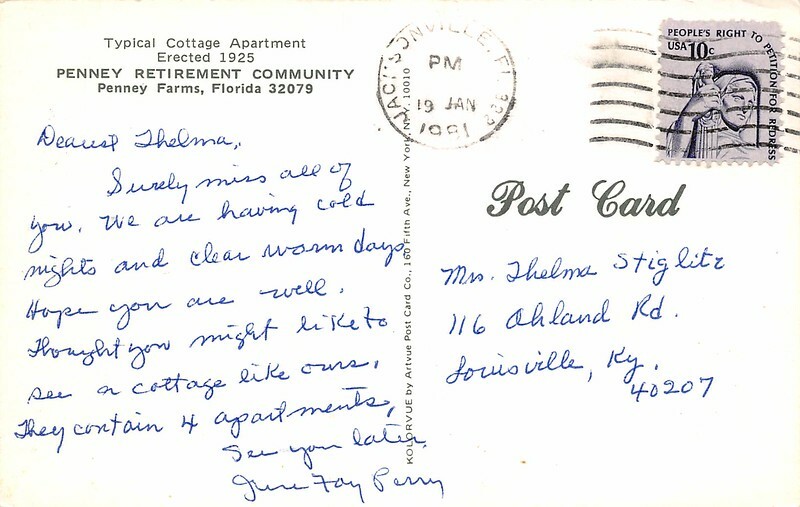 Typical Cottage Apartment
Erected 1925
PENNEY RETIREMENT COMMUNITY
Penney Farms, Florida 32079
Dearest Thelma,
Surely miss all of
you. We are having cold
nights and clear warm days.
Hope you are well.
Thought you might like to
see a cottage like ours.
They contain 4 apartments,
See you later,
June Fay Perry
KOLORVUE by Artvue Post Card Co., 160 Fifth Ave., New York, N.Y. 10010
JACKSONVILLE, FL 322
PM
19 JAN
1981
PEOPLE'S RIGHT TO PETITION FOR REDRESS
USA 10c
Post Card
Mrs. Thelma Stiglitz
116 Ahland Rd.
Louisville, Ky.
40207